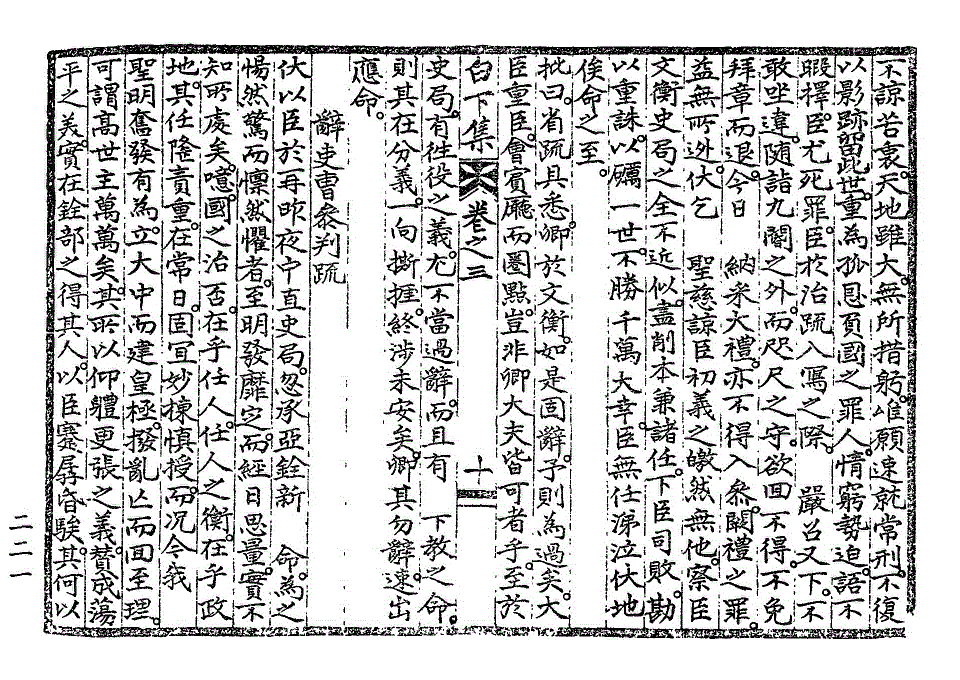 不諒苦衷。天地雖大。無所措躬。唯願速就常刑。不復
以影跡留此世。重爲孤恩負國之罪人。情窮勢迫。語不
暇擇。臣尤死罪。臣於治疏入寫之際。 嚴召又下。不
敢坐違。隨詣九閽之外。而咫尺之守。欲回不得。不免
拜章而退。今日 納采大禮。亦不得入參。闕禮之罪。
益無所逃。伏乞 聖慈諒臣初義之皦然無他。察臣
文衡史局之全不近似。盡削本兼諸任。下臣司敗。勘
以重誅。以礪一世。不勝千萬大幸。臣無任涕泣伏地
俟命之至。
批曰。省疏具悉。卿於文衡。如是固辭。予則爲過矣。大
臣重臣。會賓廳而圈點。豈非卿大夫皆可者乎。至於
白下集 卷之三 十一
史局。有往役之義。尤不當過辭。而且有 下教之命。
則其在分義。一向撕捱。終涉未安矣。卿其勿辭。速出
應命。
辭吏曹參判疏
伏以臣於再昨夜。宁直史局。忽承亞銓新 命。爲之
惕然驚而懍然懼者。至明發靡定。而經日思量。實不
知所處矣。噫。國之治否。在乎任人。任人之衡。在乎政
地。其任隆責重。在常日。固宜妙揀愼授。而况今我
聖明奮發有爲。立大中而建皇極。撥亂亡而回至理。
可謂高世主萬萬矣。其所以仰軆更張之義。贊成蕩
平之義。實在銓部之得其人。以臣蹇孱昏騃。其何以
二二一